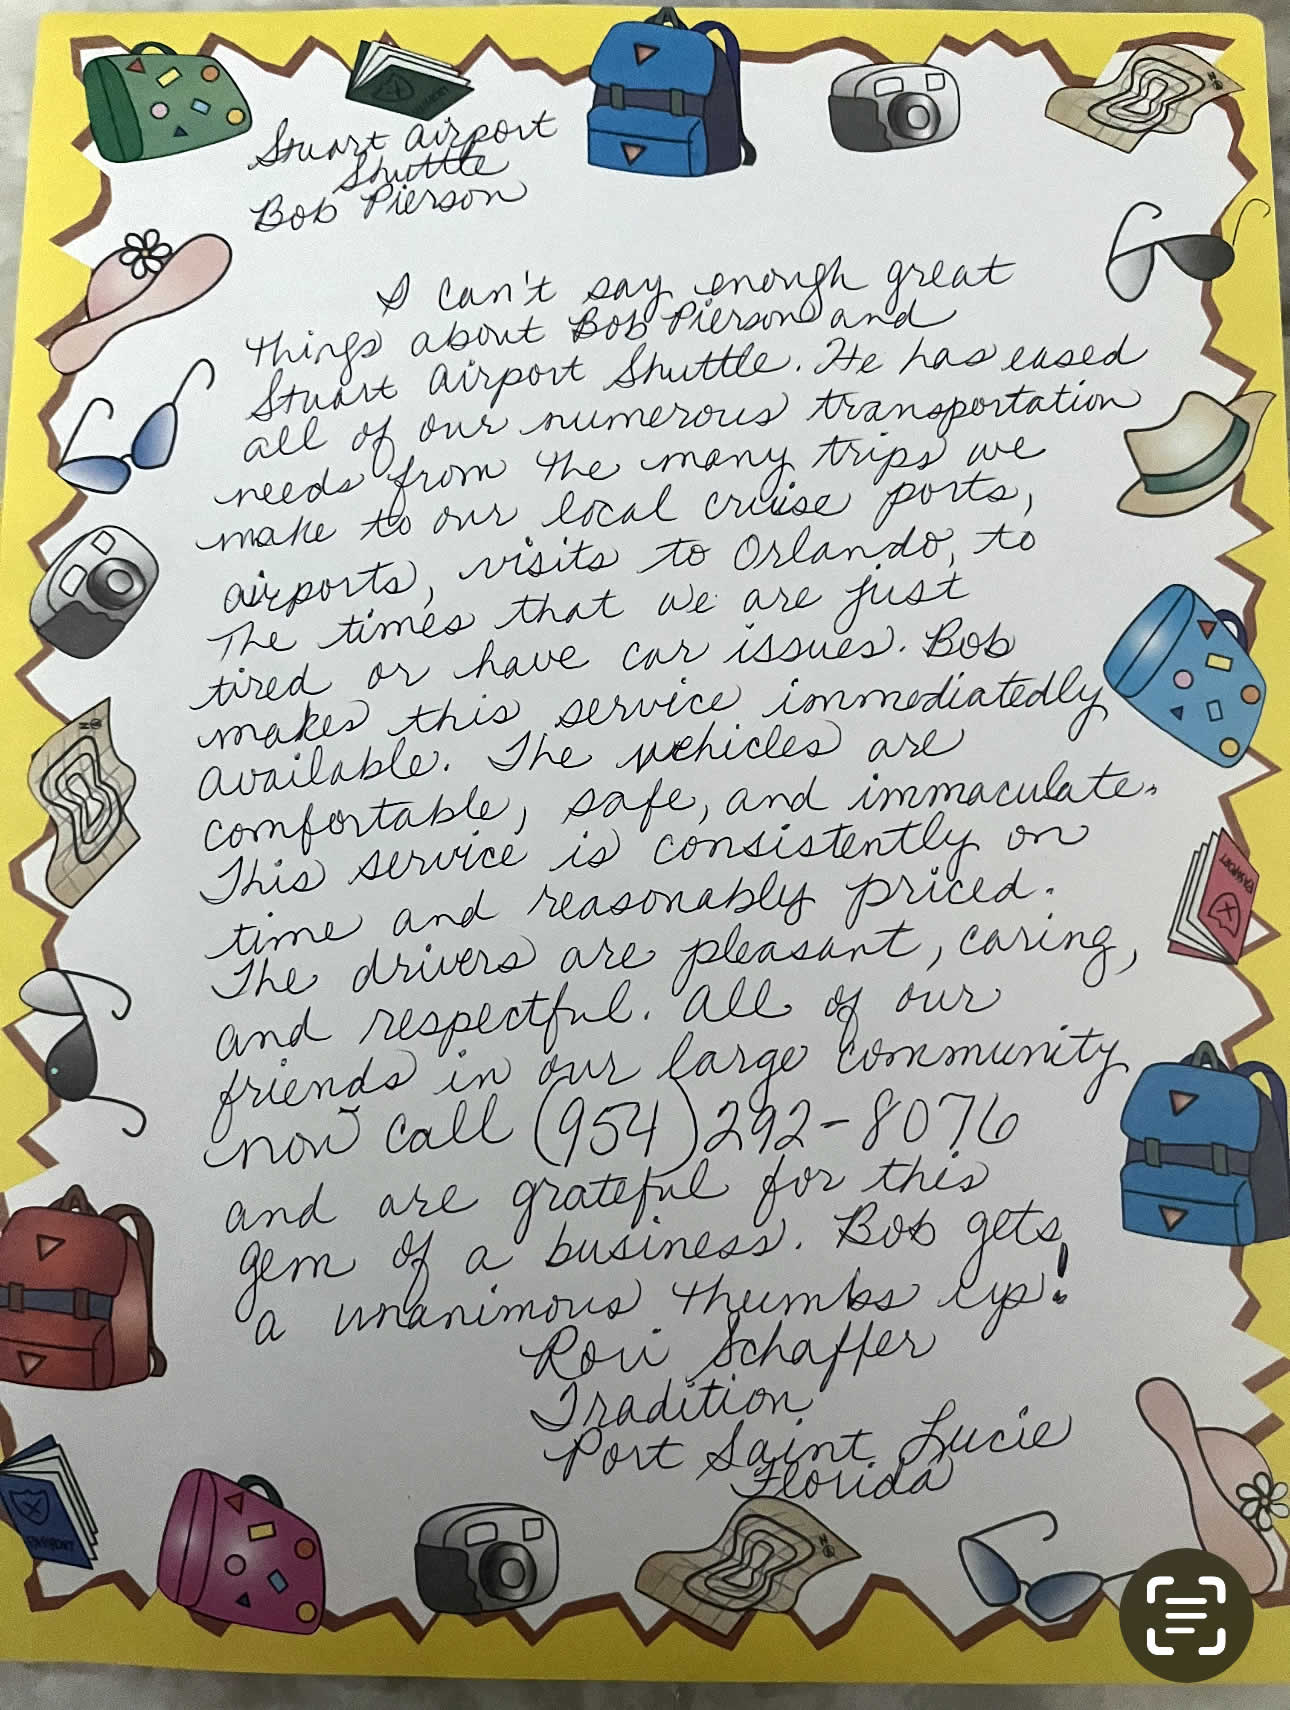 PASSPORT
Stuart Airport
Shuttle
Bob Pierson
I can't say enough great
things about Bob Pierson and
Stuart Airport Shuttle. He has eased
all of our numerous transportation
needs from the many trips we
make to our local cruise ports,
airports, visits to Orlando, to
the times that we are just
tired or have car issues. Bob
makes this service immediatedly
available. The vehicles are
comfortable, safe, and immaculate.
This service is consistently on
time and reasonably priced.
The drivers are pleasant, caring,
and respectful. All of our
friends in our large community
now call (954) 292-8076
and are grateful for this
gem of a business. Bob gets
a unanimous thumbs up!
Rori Schaffer
Tradition
Port Saint Lucie
Florida
N
N
PASSPORT
PASSPORT
N